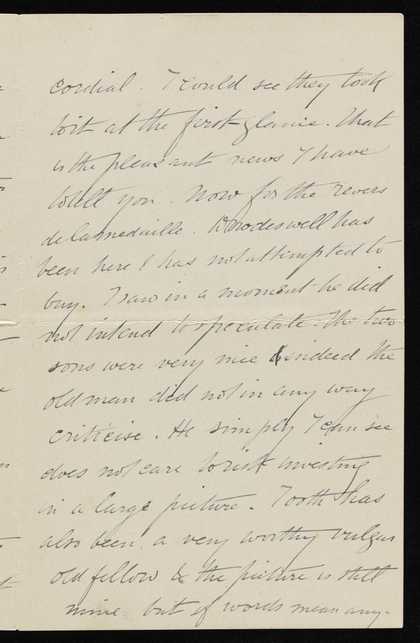 cordial. I could see they took
to it at the first glance. That
is the pleasant news I have
to tell you. Now for the revers
de la medaille. Brodeswell has
been here & has not attempted to
buy. I saw in a moment he did
not intend to speculate. The two
sons were very nice & indeed the
old man did not in any way
criticise. He simply I can see
does not care to risk investing
in a large picture. Tooth has
also been a very worthy vulgar
old fellow & the picture is still
mine but if words mean any-